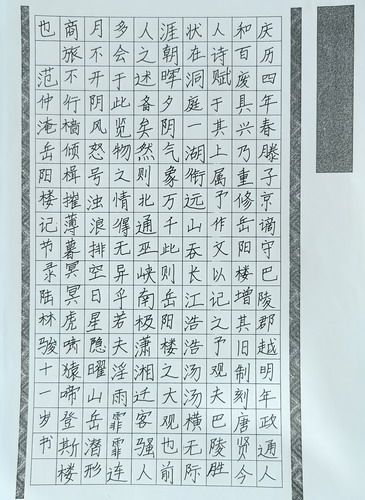 庆历四年春滕子京谪守巴陵郡越明年政通人
和百废具兴乃重修岳阳楼增其旧制刻唐贤今
人诗赋于其上属予作文以记之予观夫巴陵胜
状在洞庭一湖衔远山吞长江浩浩汤汤横无际
涯朝晖夕阴气象万千此则岳阳楼之大观也前
人之述备矣然则北通巫峡南极潇湘迁客骚人
多会于此览物之情得无异乎若夫淫雨霏霏连
月不开阴风怒号浊浪排空日星隐曜山岳潜形
商旅不行樯倾楫摧薄暮冥冥虎啸猿啼登斯楼
也 范仲淹岳阳楼记节录陆林骏十一岁书